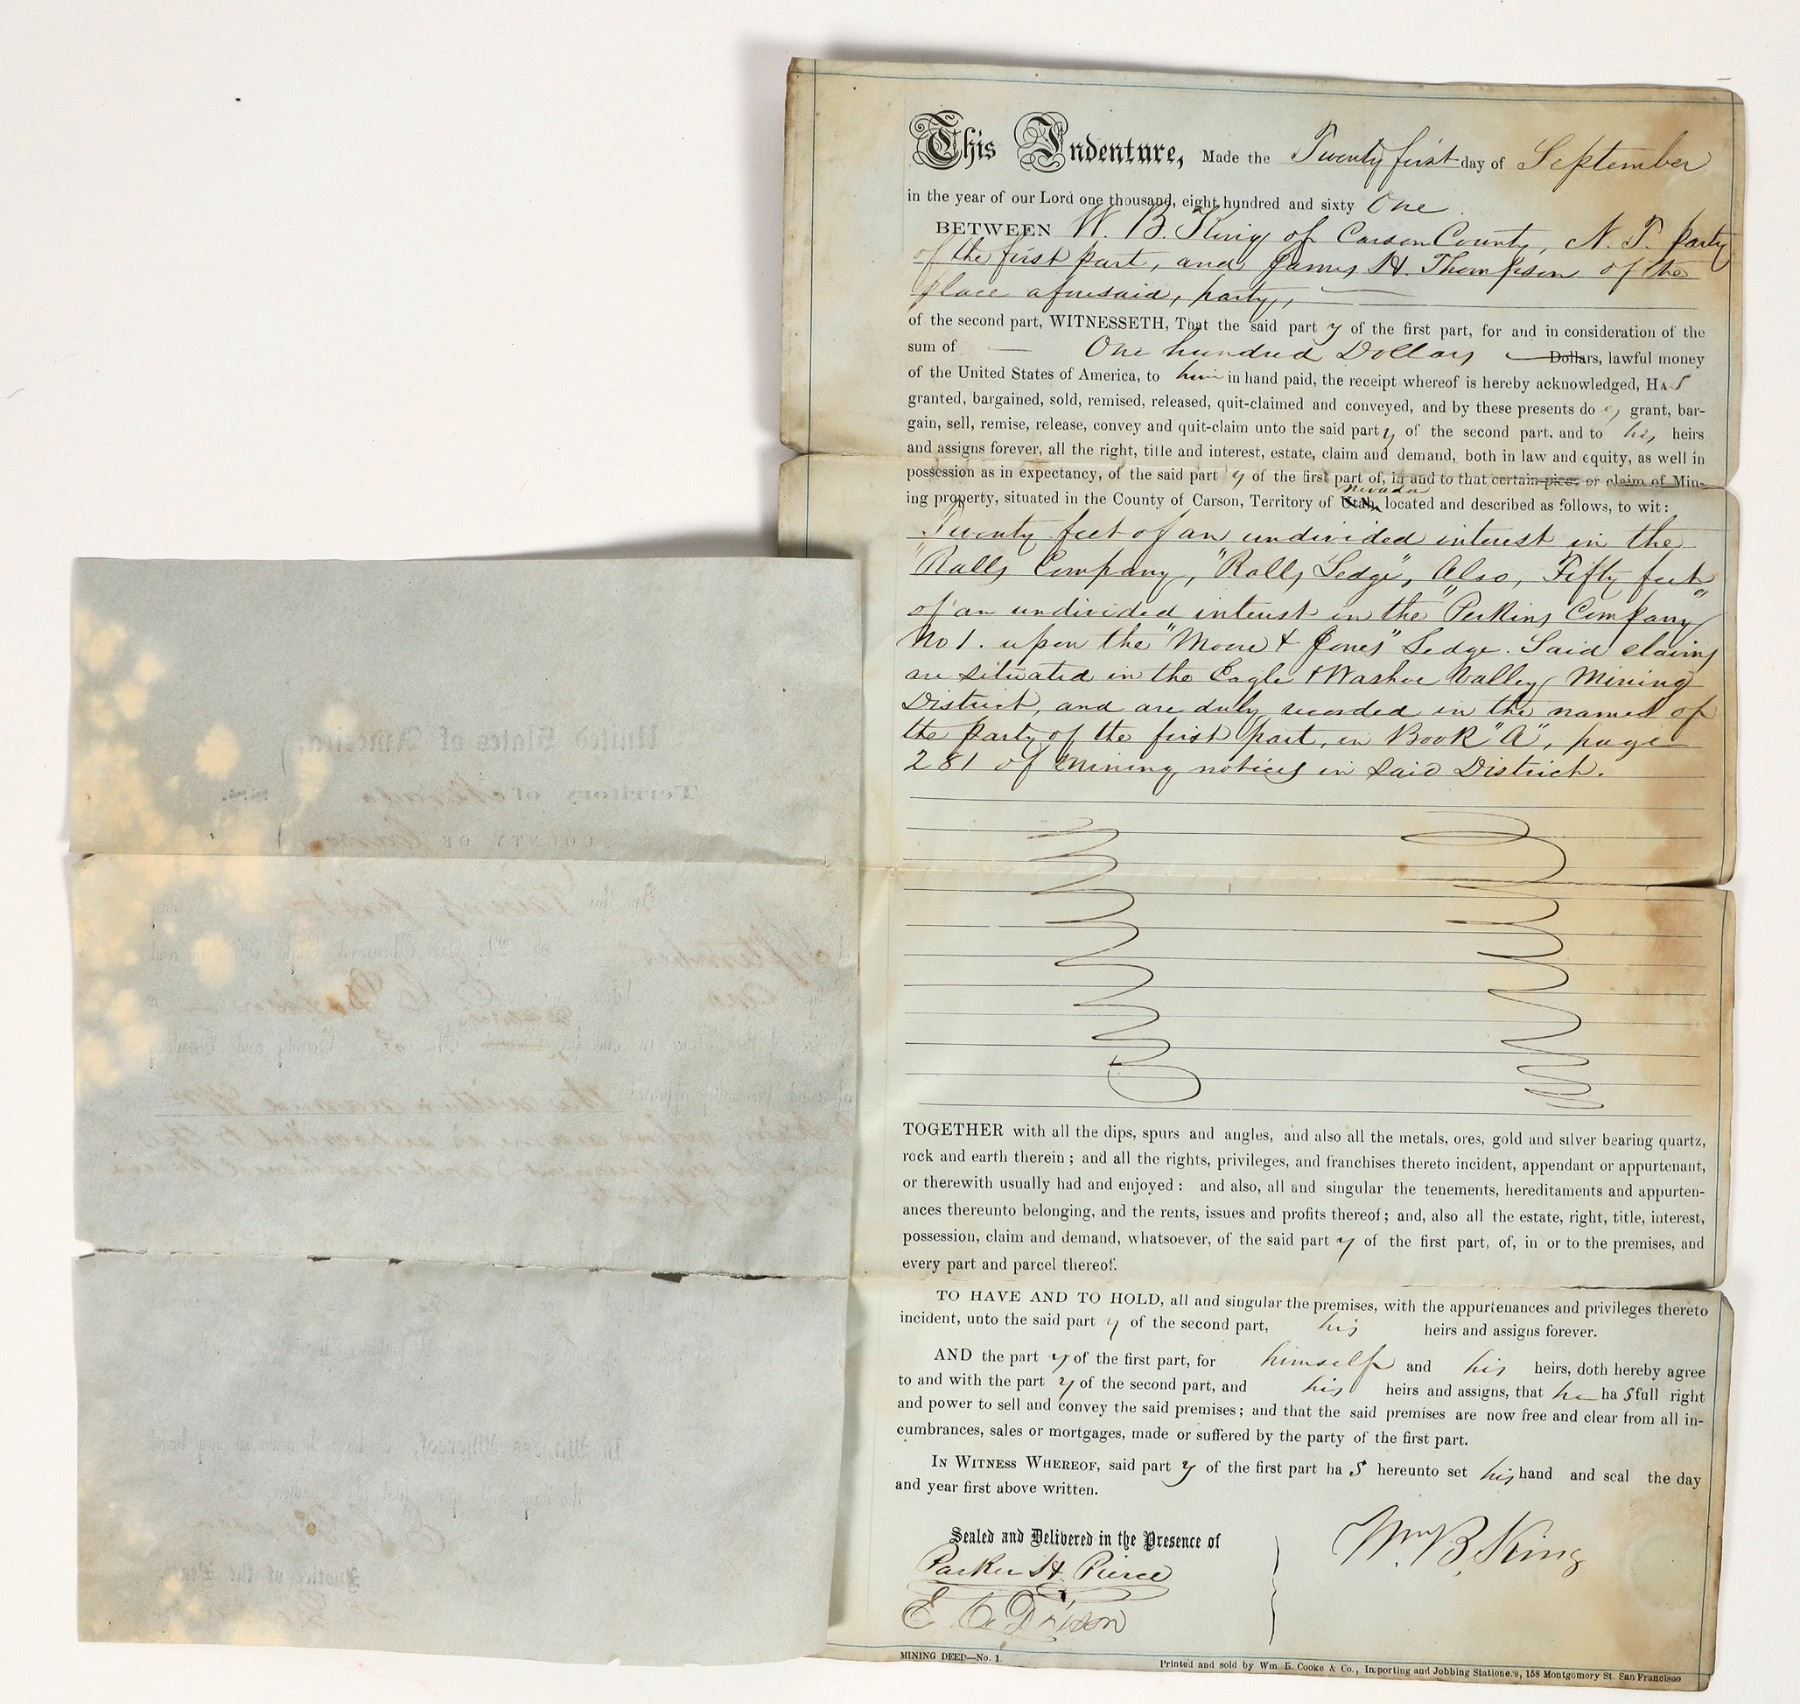 This Indenture, Made the Twenty first day of September
in the year of our Lord one thousand, eight hundred and sixty One
BETWEEN W. B. King of Carson County, N. T. party
of the first part, and James H. Thompson of the
place aforesaid, party,
of the second part, WITNESSETH, That the said part y of the first part, for and in consideration of the
sum of One hundred Dollars Dollars, lawful money
of the United States of America, to him in hand paid, the receipt whereof is hereby acknowledged, HAS
granted, bargained, sold, remised, released, quit-claimed and conveyed, and by these presents do grant, bar-
gain, sell, remise, release, convey and quit-claim unto the said party of the second part, and to his heirs
and assigns forever, all the right, title and interest, estate, claim and demand, both in law and equity, as well in
possession as in expectancy, of the said part y of the first part of, in and to that certain piece or claim of Min-
ing property, situated in the County of Carson, Territory of Utah, Nevada located and described as follows, to wit:
Twenty feet of an undivided interest in the
"Ralls Company, "Ralls Ledge", Also, Fifty feet
of an undivided interest in the "Perkins Company"
No 1. upon the "Moore & Jones" Ledge. Said claims
are situated in the Eagle & Washoe Valley Mining
District, and are duly recorded in the names of
the party of the first part, in Book "A", page
281 of Mining notices in said District.
TOGETHER with all the dips, spurs and angles, and also all the metals, ores, gold and silver bearing quartz,
rock and earth therein; and all the rights, privileges, and franchises thereto incident, appendant or appurtenant,
or therewith usually had and enjoyed: and also, all and singular the tenements, hereditaments and appurten-
ances thereunto belonging, and the rents, issues and profits thereof; and, also all the estate, right, title, interest,
possession, claim and demand, whatsoever, of the said part y of the first part, of, in or to the premises, and
every part and parcel thereof.
TO HAVE AND TO HOLD, all and singular the premises, with the appurtenances and privileges thereto
incident, unto the said part y of the second part, his heirs and assigns forever.
AND the part y of the first part, for himself and his heirs, doth hereby agree
to and with the part y of the second part, and his heirs and assigns, that he ha s full right
and power to sell and convey the said premises; and that the said premises are now free and clear from all in-
cumbrances, sales or mortgages, made or suffered by the party of the first part.
IN WITNESS WHEREOF, said part y of the first part ha s hereunto set his hand and seal the day
and year first above written.
Sealed and Delivered in the Presence of
Parker H. Pierce
E. C. Dixson
Wm B. King
MINING DEED—No. 1.
Printed and sold by Wm. B. Cooke & Co., Importing and Jobbing Stationers, 158 Montgomery St. San Francisco